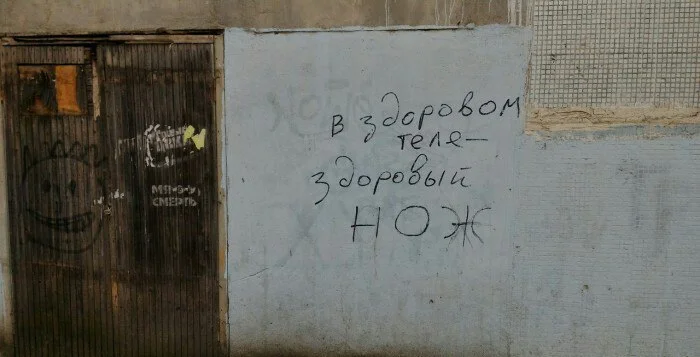 МЯ-У-У,
СМЕРТЬ
в здоровом
теле—
здоровый
НОЖ